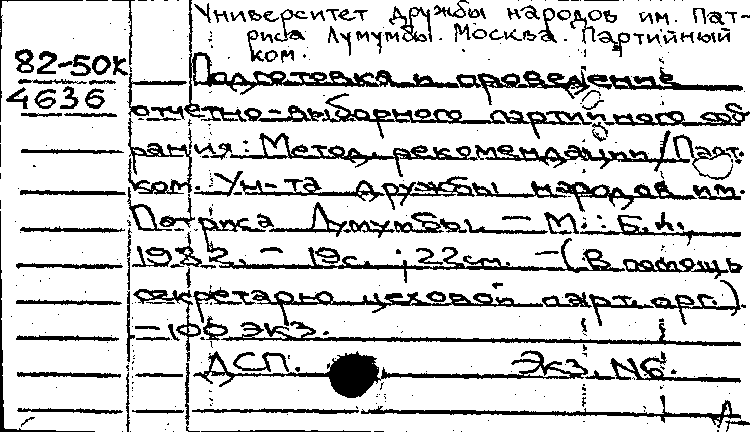 Университет дружбы народов им. Пат-
риса Лумумбы. Москва. Партийный
ком.
82-50к
4636
Подготовка и проведение
отчетно-выборного партийного соб
рания: Метод. рекомендации / Парт.
ком. Ун-та дружбы народов им.
Патриса Лумумбы. - М.: Б.и.,
1982. - 19с. ; 22см. - (В помощь
секретарю цеховой парт. орг.)
- 100 экз.
ДСП. Экз. N6.